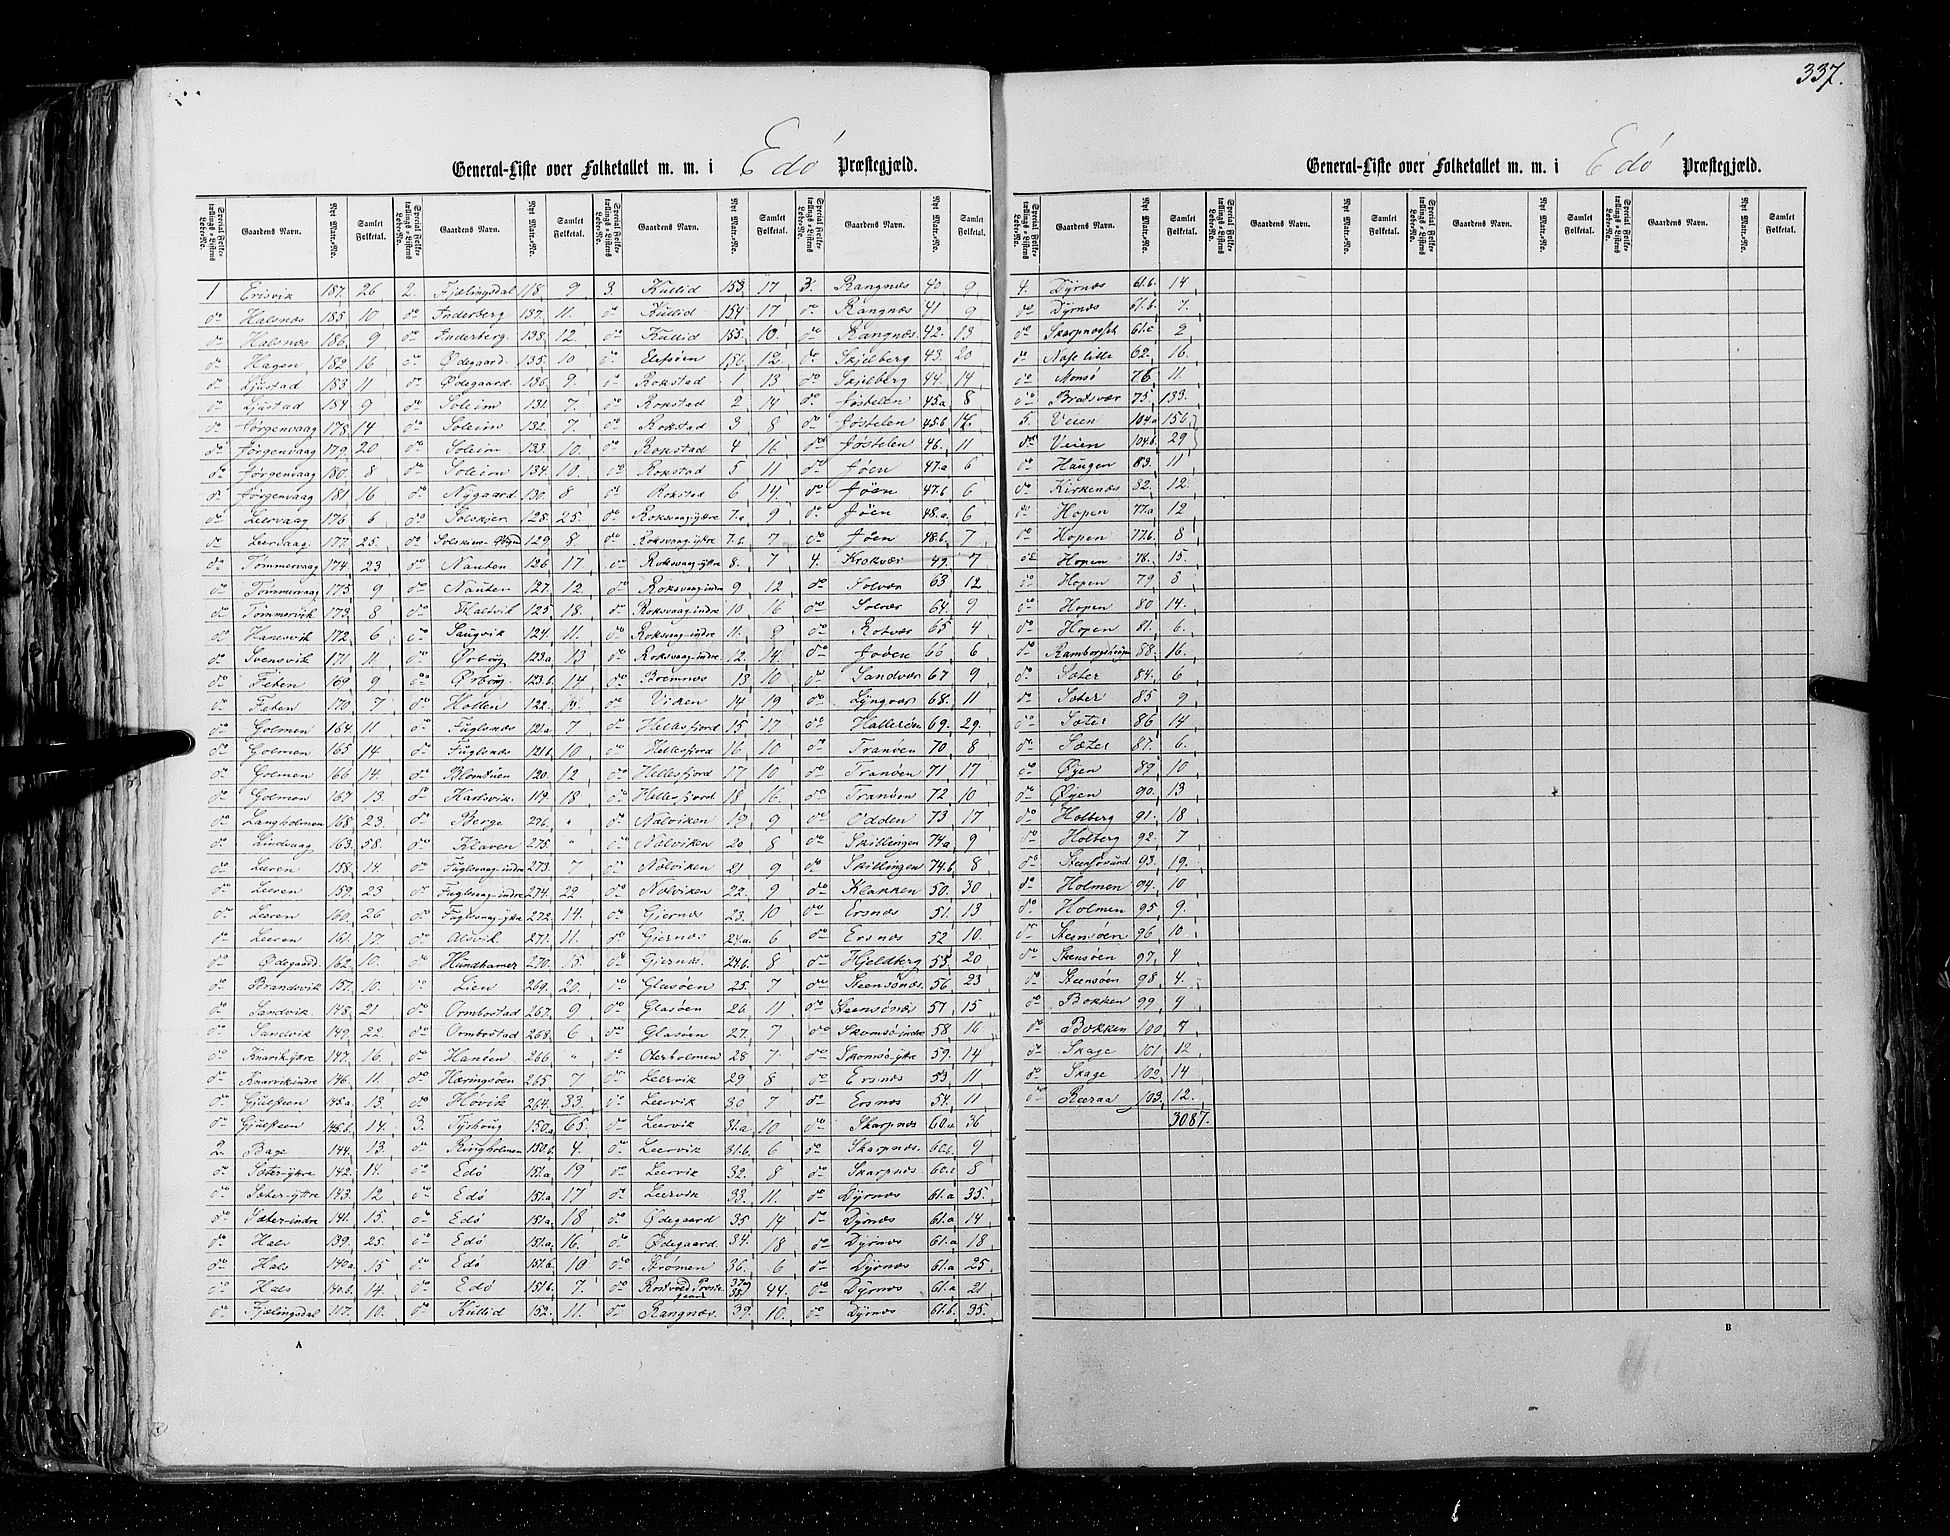 337.
General-Liste over Folketallet m. m. i Edö Præstegjæld.
Special Folketællings-Listens Løbe-No. | Gaardens Navn. | Nyt Matr.-No. | Samlet Folketal. | Special Folketællings-Listens Løbe-No. | Gaardens Navn. | Nyt Matr.-No. | Samlet Folketal. | Special Folketællings-Listens Løbe-No. | Gaardens Navn. | Nyt Matr.-No. | Samlet Folketal. | Special Folketællings-Listens Løbe-No. | Gaardens Navn. | Nyt Matr.-No. | Samlet Folketal.
1 Erisvik 187. 26 2. Fjælingsdal 118. 9 3. Kullid 153. 17 3. Rangnæs 40 9
do Halsnæs 185 10 do Inderberg 137. 11. do Kullid 154 17 do Rangnæs 41 9
do Halsnæs 186 9 do Inderberg 138. 12 do Kullid 155. 10. do Rangnæs 42. 13
do Hagen 182 16 do Ødegaard 135. 10 do 156. 12. do Skjelberg 43. 20
do Ljustad 183 11 do Ødegaard 136. 9. do Rokstad 1 13 do Skjelberg 44. 14
do Ljustad 184 9 do Soleim 131. 7. do Rokstad 2 14 do Jøstelen 45a 8
do Jørgenvaag 178 14 do Soleim 132. 7. do Rokstad 3 8 do Jøstelen 45.b
do Jørgenvaag 179. 20 do Soleim 133. 10. do Rokstad 4 16 do Jøstelen 46. 11
do Jørgenvaag 180. 8 do Soleim 134. 10. do Rokstad 5 11 do Jøen 47.a 6
do Jørgenvaag 181 16 do Nygaard 130. 8 do Rokstad 6 14. do Jøen 47.b 6
do Leervaag 176. 6 do Solskier 128. 25. do Roksvaag-yttre 7.a 9 do Jøen 48.a. 6
do Leervaag 177. 25. do Solskier 129 8. do Roksvaag-yttre 7.b 7 do Jøen 48.b. 7
do Tømmervaag 174. 23 do Nauten 126 17 do Roksvaag-yttre 8. 7 4. Krokvær 49. 7
do Tømmervaag 175. 9 do Nauten 127. 12 do Roksvaag-indre 9 12 do Solvær 63 12
do Tømmervik 173. 8 do Haltvik 125 18. do Roksvaag-indre 10 16 do Solvær 64. 9
do Hanesvik 172. 6 do Saugvik 124. 11. do Roksvaag-indre 11. 8 do Rotvær 65 4
do Svensvik 171. 11 do Ørbog 123.a 13 do Roksvaag-indre 12. 14. do Joøen 66 6
do Feten 169 9 do Ørbog 123.b 14 do Bremnes 13 10 do Sandvær 67 9
do Feten 170. 7 do Hollen 122. do Viken 14 19 do Lyngvær 68. 11
do Golmen 164. 11 do Fuglsnæs 121.a 7 do Hellesfjord 15 17 do Hallerøen 69. 29.
do Golmen 165 14 do Fuglsnæs 121.b 10 do Hellesfjord 16 10 do Tranøen 70 8
do Golmen 166 14 do Blomtuen 120. 12 do Hellesfjord 17 10 do Tranøen 71. 17
do Golmen 167. 13. do Karlsvik 119. 18 do Hellesfjord 18 16. do Tranøen 72. 10
do Langholmen 168. 23. do Berge 276. " do Nalviken 19 9 do Odden 73 17
do Lindvaag 163. 58. do Klaven 275. " do Nolviken 20 8 do Skillingen 74a 9
do Leeren 158. 14. do Fuglevaag-indre 273. 7 do Nolviken 21 9 do Skillingen 74.b 8
do Leeren 159. 23 do Fuglevaag-indre 274. 22 do Nolviken 22. 9 do Klakken 50. 30
do Leeren 160. 26 do Fuglevaag-yttre 272. 14. do Giernæs 23. 10 do Ersnæs 51. 13
do Leeren 161. 17. do Alsvik 271. 11. do Giernæs 24.a. 6 do Ersnæs 52 10.
do Ødegaard 162. 10. do Hundhamer 270. 15 do Giernæs 24.b 8 do Hjeldberg 55. 20
do Brandsvik 157. 10. do Lien 269. 20. do Glasøen 25. 7 do Steensønæs 56 23
do Sandvik 148. 21 do Ormbostad 267. 9 do Glasøen 26 11 do Steensønæs 57 15
do Sandvik 149. 22. do Ormbostad 268. 6 do Glasøen 27. 7 do Skomsø-indre 58 16
do Knarvik-yttre 147. 16. do Hansen 266 " do Oterholmen 28 7 do Skomsø-yttre 59. 14
do Knarvik-indre 146. 11. do Hæringsøen 265 7 do Leervik 29 8 do Ersnæs 53 11
do Gjulsteen 145.a. 13. do Høvik 264. 33. do Leervik 30 7 do Ersnæs 54. 11
do Gjulsteen 145.b. 14. 3. Tyrhoug 150.a 65. do Leervik 31.a 10 do Skarpnæs 60.a 36
2. Bage 144. 13. do Ringholmen 150.b 4. do Leervik 31.b. 6 do Skarpnæs 60.b. 9
do Sæter-yttre 142. 14. do Edö 151.a 19 do Leervik 32. 8 do Skarpnæs 60.c 8
do Sæter-yttre 143. 12 do Edö 151.a 17 do Leervik 33. 11. do Dyrnæs 61.a 35.
do Sæter-indre 141. 15. do Edö 151.a. 18 do Ødegaard 35 14 do Dyrnæs 61.a 14
do Hals 139. 25. do Edö 151.a. 16. do Ødegaard 34. 18 do Dyrnæs 61.a 18
do Hals 140.a. 15 do Edö 151.b. 10 do Strømen 36. 6 do Dyrnæs 61.a 25.
do Hals 140.b. 14. do Edö 151.b. 7. do 44. do Dyrnæs 61.a 21
do Fjælingsdal 117. 10. do Kullid 152. 11. do Rangnæs 39. 10. do Dyrnæs 61.b. 35.
A
General-Liste over Folketallet m. m. i Edö Præstegjæld.
Special Folketællings-Listens Løbe-No. | Gaardens Navn. | Nyt Matr.-No. | Samlet Folketal. | Special Folketællings-Listens Løbe-No. | Gaardens Navn. | Nyt Matr.-No. | Samlet Folketal. | Special Folketællings-Listens Løbe-No. | Gaardens Navn. | Nyt Matr.-No. | Samlet Folketal. | Special Folketællings-Listens Løbe-No. | Gaardens Navn. | Nyt Matr.-No. | Samlet Folketal.
4. Dyrnæs 61.b. 14
do Dyrnæs 61.b. 7.
do 61.c 2
do Nase lille 62. 16.
do Monsø 76. 11
do Bratsvær 75. 133.
5. Veien 104.a 156
do Veien 104.b. 29
do Haugen 83. 11
do Kirkenæs 82. 12.
do Hopen 77.a 12
do Hopen 77.b. 8
do Hopen 78. 15.
do Hopen 79 8
do Hopen 80 14.
do Hopen 81. 6.
do 88. 16.
do Sæter 84. 6
do Sæter 85 9
do Sæter 86 14
do Sæter 87. 6.
do Øyen 89 10
do Øyen 90. 13
do Holberg 91. 18
do Holberg 92. 7
do Steensund 93. 19.
do Holmen 94. 10
do Holmen 95 9.
do Steensøen 96 10.
do Steensøen 97. 4
do Steensøen 98 4.
do Bokken 99. 4
do Bokken 100. 7
do Skage 101. 12
do Skage 102 14
do Reeraa 103. 12.
3087.
B